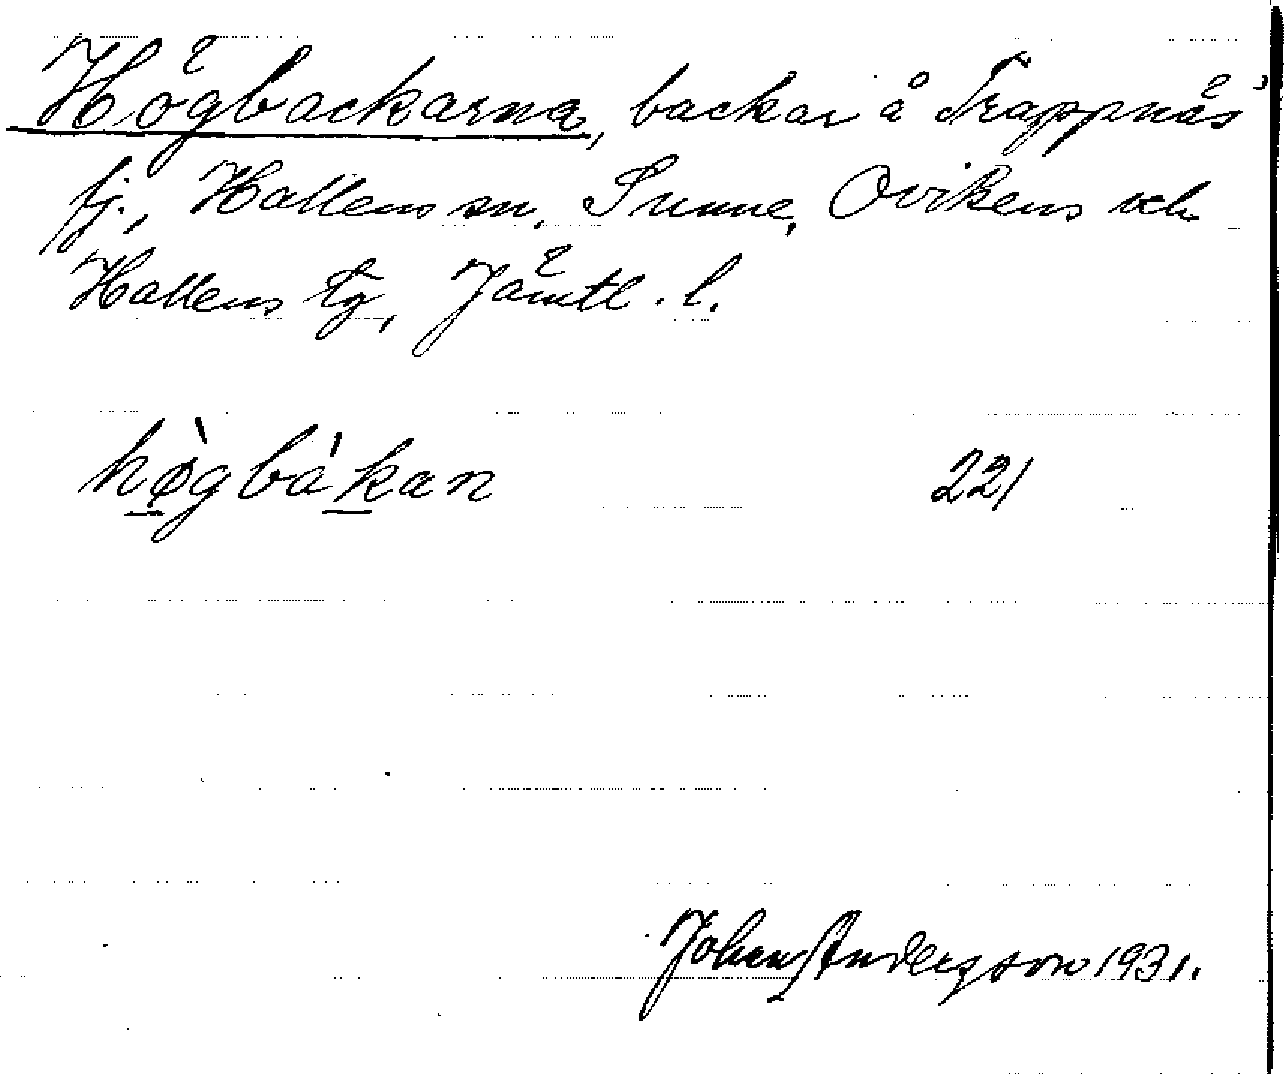 Högbackarna, backar å Trappnäs
fj., Hallens sn, Sunne, Ovikens och
Hallens tg, Jämtl. l.
hø̀gbákan 221
Johan Andersson 1931.